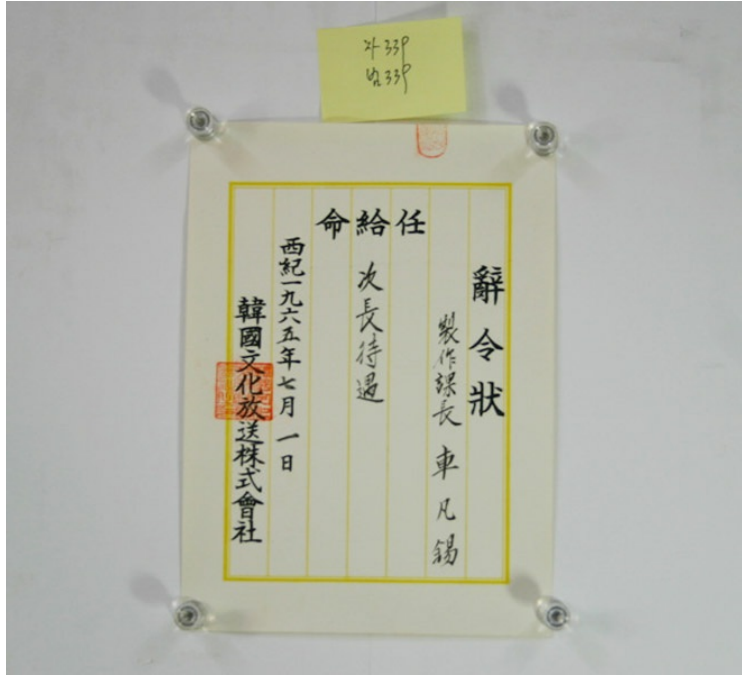 자339
범339
辭令狀
製作課長 車凡錫
任給命
次長待遇
西紀一九六五年七月一日
韓國文化放送株式會社